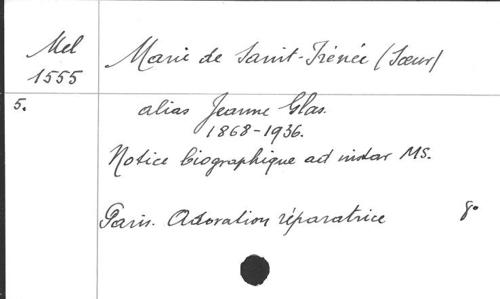 Mel
1555
5.
Marie de Saint-Irénée (Sœur)
alias Jeanne Glas.
1868-1936.
Notice biographique ad instar MS.
Paris. Adoration réparatrice 8°